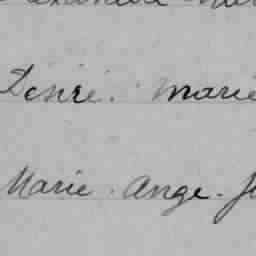 Désiré. Marie
Marie. Ange. J